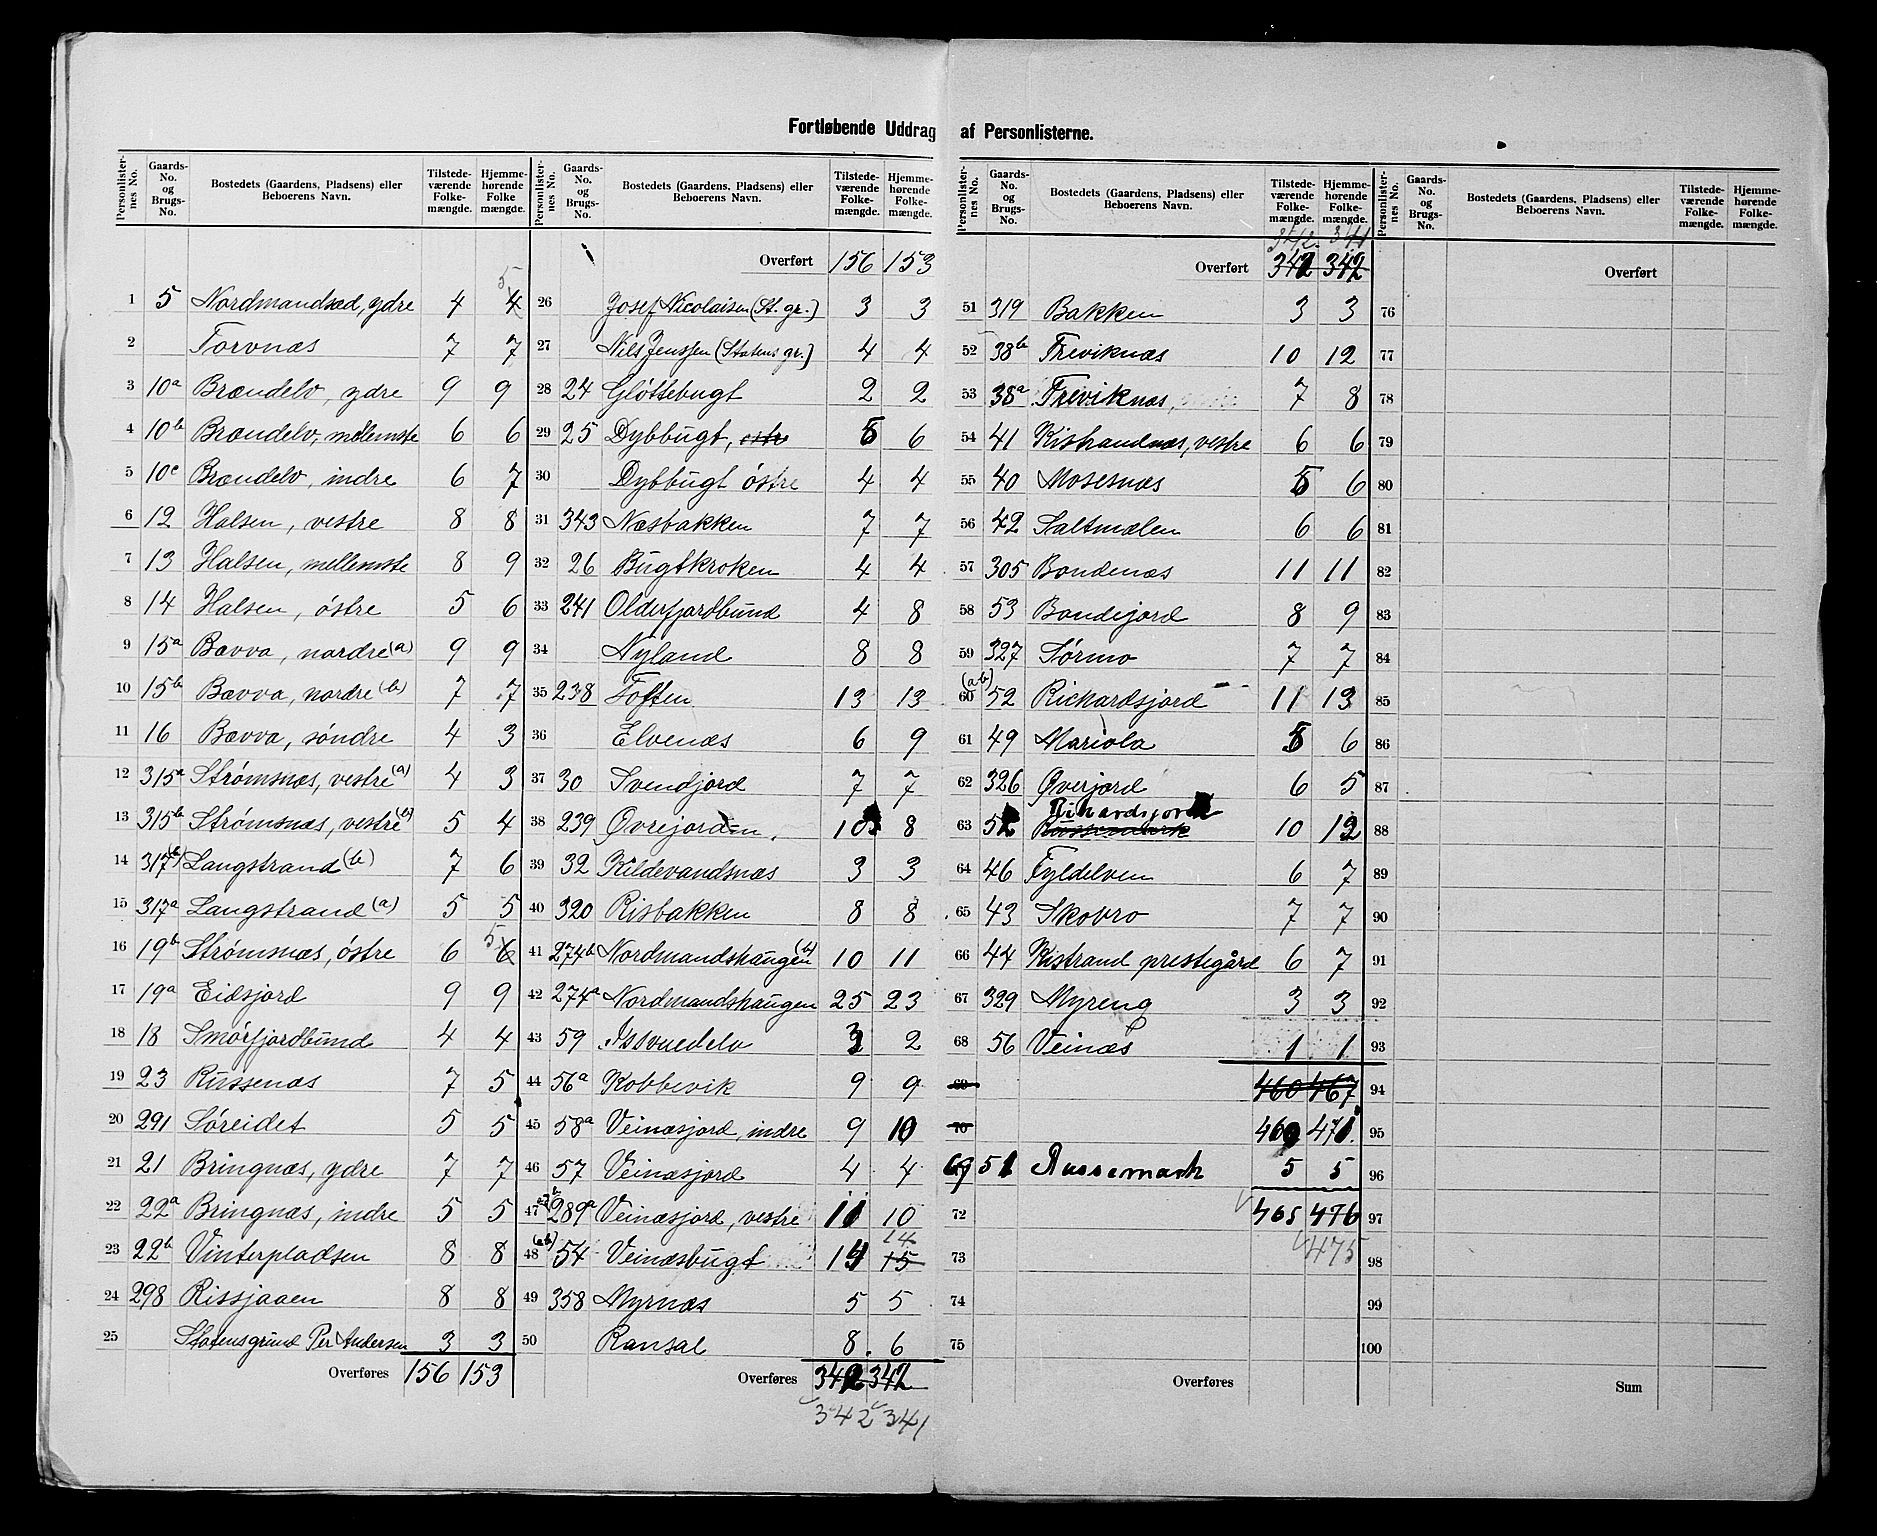 Fortløbende Uddrag af Personlisterne.
Personlister-nes No. Gaards-No. og Brugs-No. Bostedets (Gaardens, Pladsens) eller Beboerens Navn. Tilstede-værende Folke-mængde. Hjemme-hørende Folke mængde.
1 5 Nordmandsæd, ydre 4 4 5
2 Torvnæs 7 7
3 10a Brændelv, ydre 9 9
4 10b Brændelv, mellemste 6 6
5 10c Brændelv, indre 6 7
6 12 Halsen, vestre 8 8
7 13 Halsen, mellemste 8 9
8 14 Halsen, östre 5 6
9 15a Bævva, nordre (a) 9 9
10 15b Bævva, nordre (b) 7 7
11 16 Bævva, söndre 4 3
12 315a Strømsnæs, vestre (a) 4 3
13 315b Strømsnæs, vestre (b) 5 4
14 317(b) Langstrand (b) 7 6
15 317a Langstrand (a) 5 5
16 19b Strømsnæs, östre 6 6 5
17 19a Eidsjord 9 9
18 18 Smörfjordbund 4 4
19 23 Russenæs 7 5
20 291 Söreidet 5 5
21 21 Bringnæs, ydre 7 7
22 22a Bringnæs, indre 5 5
23 22b Vinterpladsen 8 8
24 298 Rissjaaen 8 8
25 Statensgrund Per Andersen 3 3
Overføres 156 153
Personlister-nes No. Gaards-No. og Brugs-No. Bostedets (Gaardens, Pladsens) eller Beboerens Navn. Tilstede-værende Folke-mængde. Hjemme-hørende Folke-mængde.
Overført 156 153
26 Josef Nicolaisen (St. gr.) 3 3
27 Nils Jenssen (Statens gr.) 4 4
28 24 Glöttebugt 2 2
29 25 Dybbugt, östre 5 6
30 Dybbugt östre 4 4
31 343 Næsbakken 7 7
32 26 Bugtkroken 4 4
33 241 Olderfjordbund 4 8
34 Nyland 8 8
35 238 Toften 13 13
36 Elvenæs 6 9
37 30 Svendjord 7 7
38 239 Øvrejorden. 10 8
39 32 Kildevandsnæs 3 3
40 320 Risbakken 8 8
41 274b Nordmandshaugen (b) 10 11
42 274a Nordmandshaugen 25 23
43 59 Issvuedelv 3 2
44 56a Kobbevik 9 9
45 58a Veinæsjord, indre 9 10
46 57 Veinæsjord 4 4
47 289a Veinæsjord, vestre 11 10
48 (ab) 54 Veinæsbugt 14 15 14
49 358 Myrnæs 5 5
50 Ransal 8 6
Overføres 342 342
342 341
Personlister-nes No. Gaards-No. og Brugs-No. Bostedets (Gaardens, Pladsens) eller Beboerens Navn. Tilstede-værende Folke-mængde. Hjemme-hørende Folke-mængde.
342 341
Overført 342 342
51 319 Bakken 3 3
52 38b Treviknæs 10 12
53 38a Treviknæs, 7 8
54 41 Kistrandnæs, vestre 6 6
55 40 Mosesnæs 5 6
56 42 Saltmælen 6 6
57 305 Bondenæs 11 11
58 53 Bondejord 8 9
59 327 Sørmo 7 7
60 (ab) 52 Richardsjord 11 13
61 49 Mariola 5 6
62 326 Øverjord 6 5
Richardsjord
63 52 Russemark 10 12
64 46 Fyldelven 6 7
65 43 Skovro 7 7
66 44 Kistrand prestegård 6 7
67 329 Myreng 3 3
68 56 Veinæs 1 1
69 460 467
70 460 471
69 51 Russemark 5 5
72 465 476
73 475
74
75
Overføres
Personlister-nes No. Gaards-No. og Brugs-No. Bostedets (Gaardens, Pladsens) eller Beboerens Navn. Tilstede-værende Folke-mængde. Hjemme-hørende Folke-mængde.
Overført
76
77
78
79
80
81
82
83
84
85
86
87
88
89
90
91
92
93
94
95
96
97
98
99
100
Sum